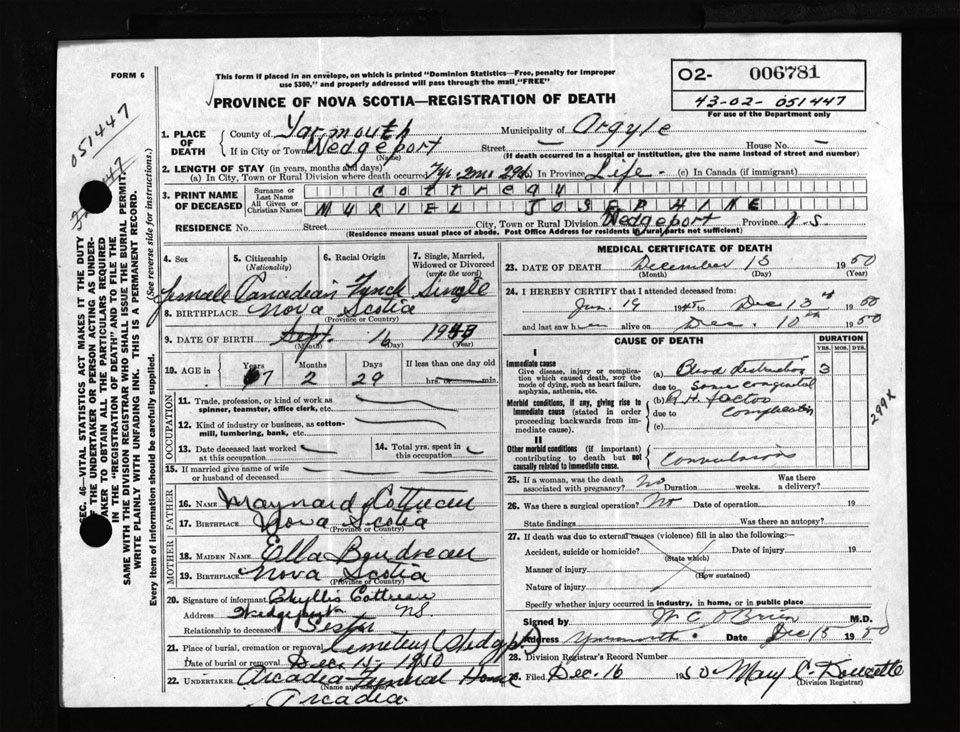 FORM 6
This form if placed in an envelope, on which is printed "Dominion Statistics—Free, penalty for improper
use $300," and properly addressed will pass through the mail "FREE"
PROVINCE OF NOVA SCOTIA—REGISTRATION OF DEATH
O2- 006781
43-02- 051447
For use of the Department only
051447
SEC. 46—VITAL STATISTICS ACT MAKES IT THE DUTY
OF THE UNDERTAKER OR PERSON ACTING AS UNDER-
TAKER TO OBTAIN ALL THE PARTICULARS REQUIRED
IN THE "REGISTRATION OF DEATH" AND TO FILE THE
SAME WITH THE DIVISION REGISTRAR WHO SHALL ISSUE THE BURIAL PERMIT.
WRITE PLAINLY WITH UNFADING INK. THIS IS A PERMANENT RECORD.
Every item of information should be carefully supplied. (See reverse side for instructions.)
1. PLACE OF DEATH
County of Yarmouth Municipality of Argyle
If in City or Town Wedgeport (Name) Street — House No. —
(If death occurred in a hospital or institution, give the name instead of street and number)
2. LENGTH OF STAY (in years, months and days)
(a) In City, Town or Rural Division where death occurred 7yr. 2mo 29ds (b) In Province Life. (c) In Canada (if immigrant)
3. PRINT NAME OF DECEASED
Surname or Last Name Cottreau
All Given or Christian Names MURIEL JOSEPHINE
RESIDENCE No. Street City, Town or Rural Division Wedgeport Province N.S
(Residence means usual place of abode. Post Office Address for residents in rural parts not sufficient)
4. Sex 5. Citizenship (Nationality) 6. Racial Origin 7. Single, Married, Widowed or Divorced (write the word)
female Canadian Single
8. BIRTHPLACE Nova Scotia
(Province or Country)
9. DATE OF BIRTH Sept. 16 1943
(Month) (Day) (Year)
10. AGE in Years Months Days If less than one day old
7 2 29 hrs. or min.
OCCUPATION
11. Trade, profession, or kind of work as spinner, teamster, office clerk, etc.
12. Kind of industry or business, as cotton-mill, lumbering, bank, etc.
13. Date deceased last worked at this occupation 14. Total yrs. spent in this occupation
15. If married give name of wife or husband of deceased
FATHER
16. NAME Maynard Cottreau
17. BIRTHPLACE Nova Scotia
(Province or Country)
MOTHER
18. MAIDEN NAME Ella Boudreau
19. BIRTHPLACE Nova Scotia
(Province or Country)
20. Signature of informant Phyllis Cottreau
Address Wedgeport NS.
Relationship to deceased Sister
21. Place of burial, cremation or removal Cemetery Wedgept
Date of burial or removal Dec. 14, 1950
22. UNDERTAKER Arcadia Funeral Home
(Name and address)
Arcadia
MEDICAL CERTIFICATE OF DEATH
23. DATE OF DEATH December 13 1950
(Month) (Day) (Year)
24. I HEREBY CERTIFY that I attended deceased from:
Jan. 19 1945 to Dec 13th 1950
and last saw her alive on Dec. 10th 1950
CAUSE OF DEATH
DURATION
YRS. MOS. DYS.
I
Immediate cause
Give disease, injury or complication which caused death, not the mode of dying, such as heart failure, asphyxia, asthenia, etc.
(a) Blood destruction 3
due to some congenital
Morbid conditions, if any, giving rise to immediate cause (stated in order proceeding backwards from immediate cause).
(b) R.H. factor
due to complication
(c)
299x
II
Other morbid conditions (if important) contributing to death but not causally related to immediate cause.
Convulsions
25. If a woman, was the death associated with pregnancy? No Duration weeks. Was there a delivery?
26. Was there a surgical operation? No Date of operation 19
State findings Was there an autopsy?
27. If death was due to external causes (violence) fill in also the following:—
Accident, suicide or homicide? (State which) Date of injury 19
Manner of injury (How sustained)
Nature of injury
Specify whether injury occurred in industry, in home, or in public place
Signed by W C O'Brien M.D.
Address Yarmouth. Date Dec 15 1950
28. Division Registrar's Record Number
29. Filed Dec. 16 1950 Mary C. Doucette
(Division Registrar)